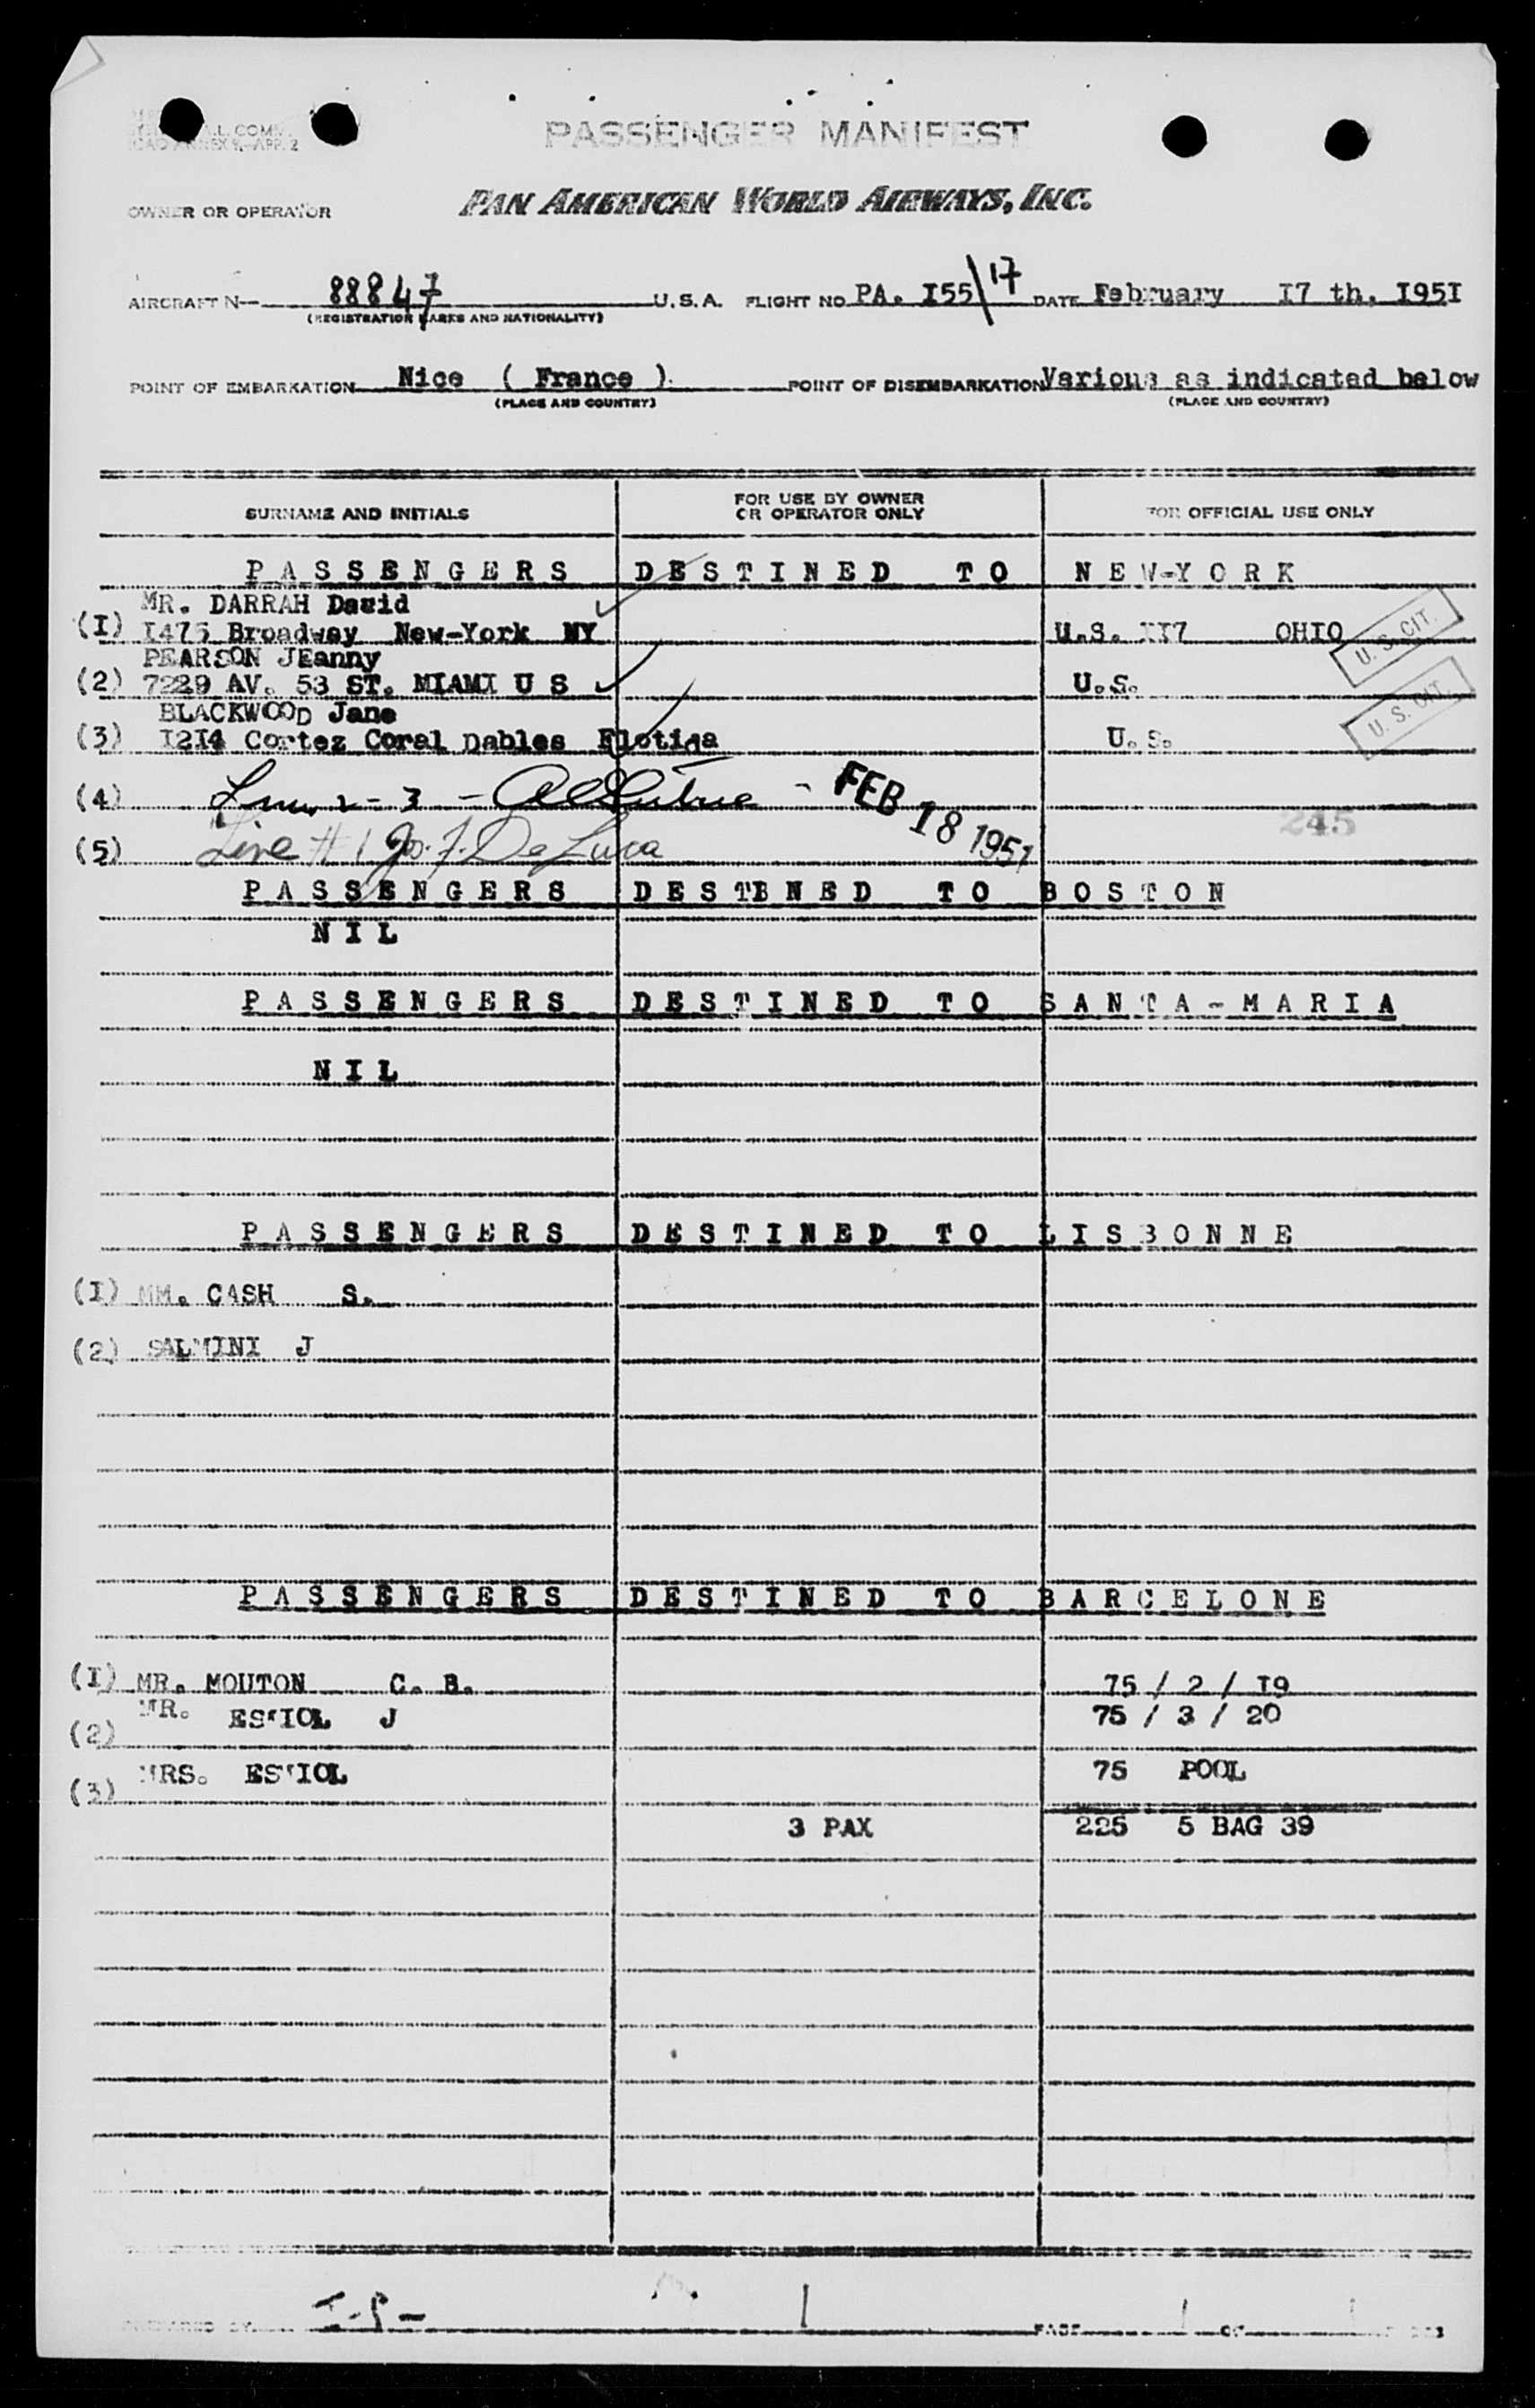 PASSENGER MANIFEST
OWNER OR OPERATOR PAN AMERICAN WORLD AIRWAYS, INC.
AIRCRAFT N— 88847 U.S.A. FLIGHT NO PA. I55/17 DATE February I7 th. I95I
(REGISTRATION MARKS AND NATIONALITY)
POINT OF EMBARKATION Nice ( France ) POINT OF DISEMBARKATION Various as indicated below
(PLACE AND COUNTRY) (PLACE AND COUNTRY)
SURNAME AND INITIALS FOR USE BY OWNER OR OPERATOR ONLY FOR OFFICIAL USE ONLY
PASSENGERS DESTINED TO NEW-YORK
MR. DARRAH David
(I) I475 Broadway New-York NY U.S. OHIO U. S. CIT.
PEARSON JEanny
(2) 7229 AV. 53 ST. MIAMI U S U.S. U. S. CIT.
BLACKWOOD Jane
(3) I2I4 Cortez Coral Dables Flotida U. S.
(4) 2 - 3 - FEB 18 1951 245
(5) Line # 1 Jo. F. DeLuca
PASSENGERS DESTBNED TO BOSTON
NIL
PASSENGERS DESTINED TO SANTA-MARIA
NIL
PASSENGERS DESTINED TO LISBONNE
(I) MM. CASH S.
(2) SALMINI J
PASSENGERS DESTINED TO BARCELONE
(I) MR. MOUTON C. B. 75 / 2 / I9
MR. J 75 / 3 / 20
(2)
MRS. 75 POOL
(3)
3 PAX 225 5 BAG 39
PAGE 1 OF 1